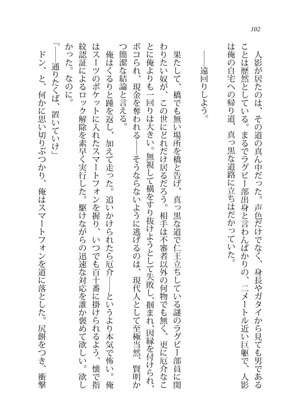 102
人影が居たのは、その道の真ん中だった。声色だけでなく、身長やガタイから見ても男である
ことは歴然としている。まるでラグビー部出身と言わんばかりの、二メートル近い巨躯で、人影
は俺の自宅への帰り道、真っ黒な道路に立ちはだかっていた。
――遠回りしよう。
果たして、橋でも無い場所を橋と告げ、真っ黒な道で仁王立ちしている謎のラグビー部員に関
わりたい奴が、この世にどれだけ居るだろう。相手は不審者以外の何物でも無く、更に厄介なこ
とに俺よりも一回りは大きい。無視して横をすり抜けようとして失敗し、掴まれ、因縁を付けられ、
ボコられ、現金を奪われる――そうならないように逃げるのは、現代人として至極当然、賢明か
つ簡潔な結論と言える。
俺はくるりと踵を返し、加えて走った。追いかけられたら厄介――というより本気で怖い。俺
はスーツのポケットに入れたスマートフォンを握り、いつでも百十番に掛けられるよう、懐で指
紋認証によるロック解除を素早く実行した。駆けながらの迅速な対応を誰か褒めて欲しい。欲し
かった。なのに。
「――通りたくば、置いていけ」
ドン、と、何かに思い切りぶつかり、俺はスマートフォンを道に落とした。尻餅をつき、衝撃